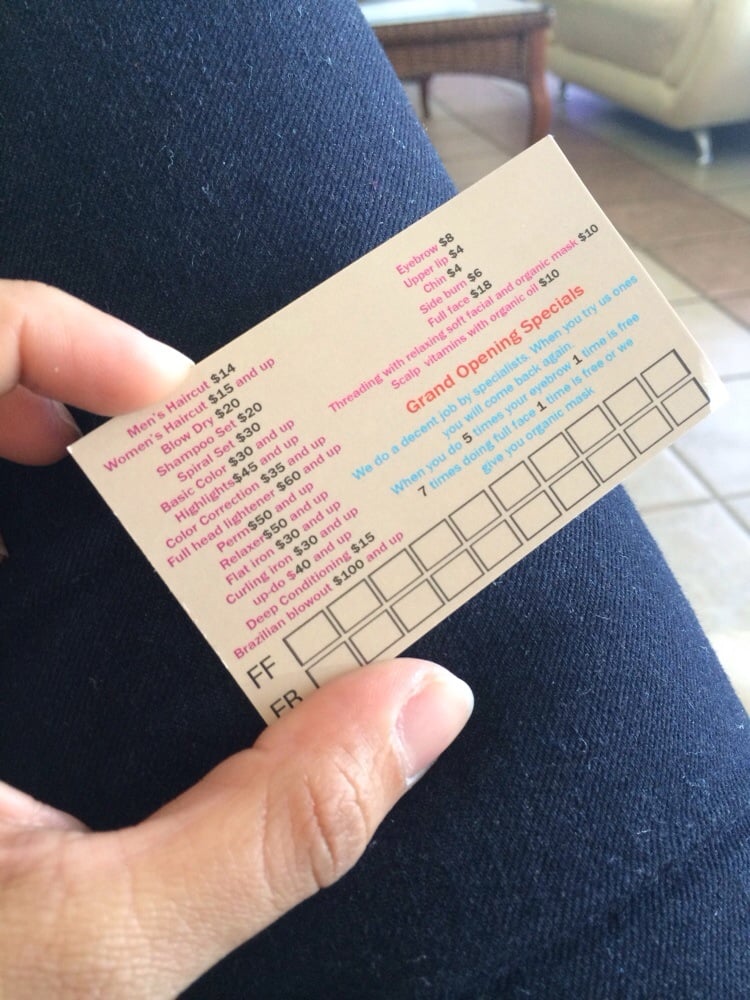 Men's Haircut $14
Women's Haircut $15 and up
Blow Dry $20
Shampoo Set $20
Spiral Set $30
Basic Color $30 and up
Highlights $45 and up
Color Correction $35 and up
Full head lightener $60 and up
Perm $50 and up
Relaxor $50 and up
Flat iron $30 and up
Curling iron $30 and up
up-do $40 and up
Deep Conditioning $15
Brazilian blowout $100 and up
Eyebrow $8
Upper lip $4
Chin $4
Side burn $6
Full face $18
Threading with relaxing soft facial and organic mask $10
Scalp vitamins with organic oil $10
Grand Opening Specials
We do a decent job by specialists. When you try us ones
you will come back again.
When you do 5 times your eyebrow 1 time is free
7 times doing full face 1 time is free or we
give you organic mask
FF
EB